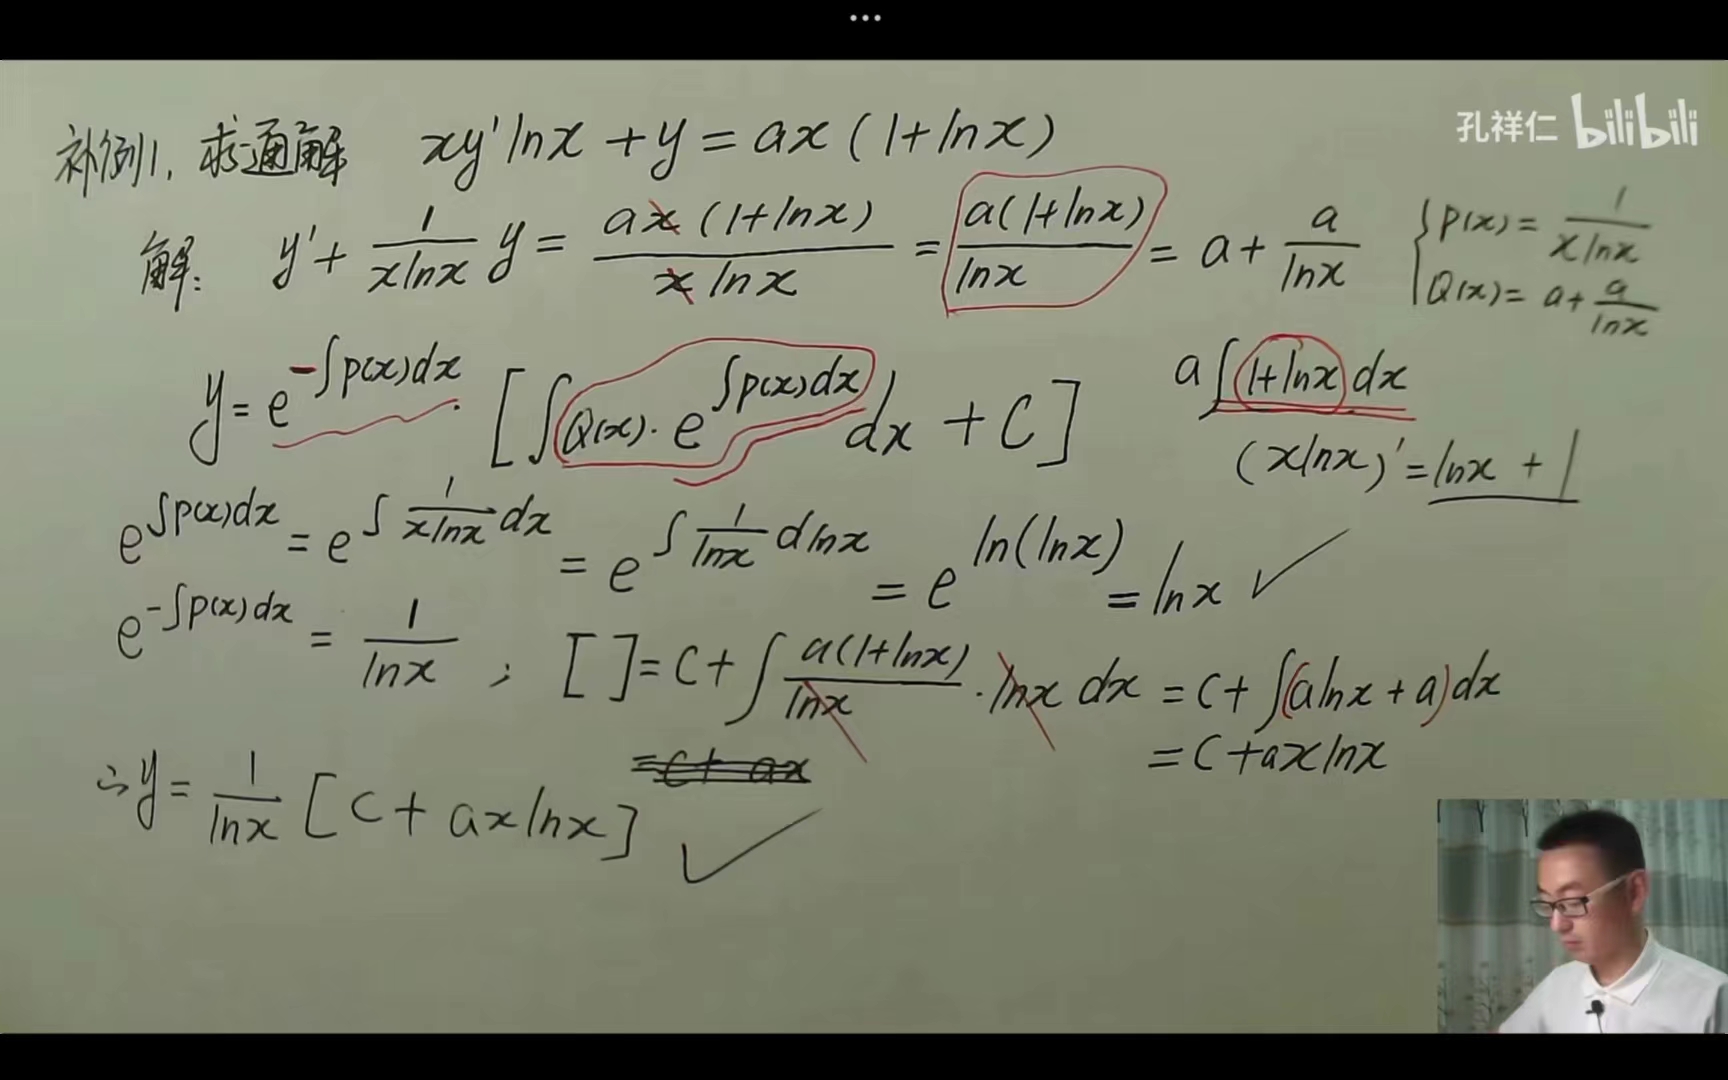 ...
孔祥仁 bilibili
补例1. 求通解 xy'lnx + y = ax(1+lnx)
解: y' + \frac{1}{xlnx} y = \frac{ax(1+lnx)}{xlnx} = \frac{a(1+lnx)}{lnx} = a + \frac{a}{lnx}
{ P(x) = \frac{1}{xlnx}
Q(x) = a + \frac{a}{lnx}
y = e^{-∫p(x)dx} · [∫Q(x)·e^{∫p(x)dx} dx + C]
a∫1+lnx dx
(xlnx)' = lnx + 1
e^{∫p(x)dx} = e^{∫\frac{1}{xlnx}dx} = e^{∫\frac{1}{lnx}dlnx} = e^{ln(lnx)} = lnx ✓
e^{-∫p(x)dx} = \frac{1}{lnx} ; [ ] = C + ∫\frac{a(1+lnx)}{lnx} · lnx dx = C + ∫(alnx + a)dx
= C + ax
= C + axlnx
∴ y = \frac{1}{lnx} [C + axlnx] ✓